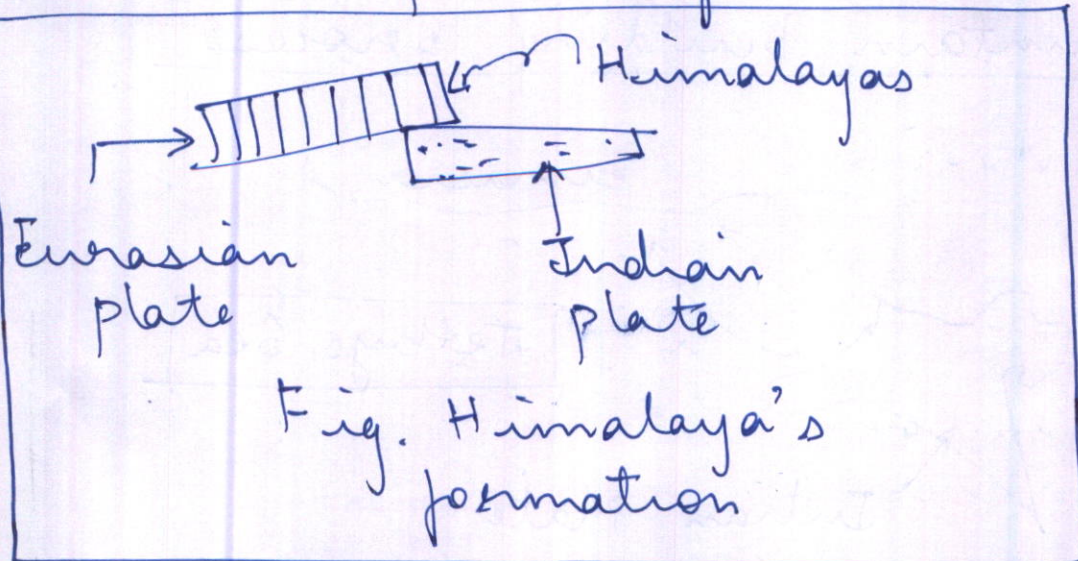 Himalayas
Eurasian plate
Indian plate
Fig. Himalaya's
formation